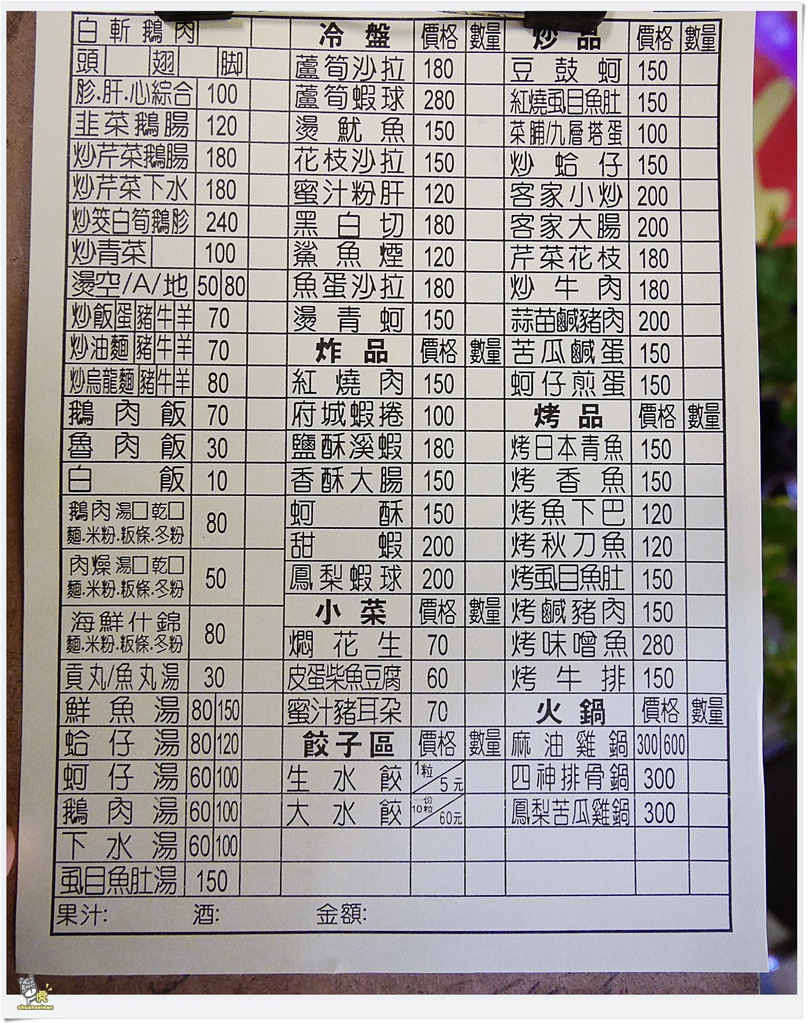 白斬鵝肉
頭 翅 脚
胗.肝.心綜合 100
韭菜鵝腸 120
炒芹菜鵝腸 180
炒芹菜下水 180
炒筊白筍鵝胗 240
炒青菜 100
燙空/A/地 50 80
炒飯蛋豬牛羊 70
炒油麵豬牛羊 70
炒烏龍麵豬牛羊 80
鵝肉飯 70
魯肉飯 30
白飯 10
鵝肉湯□乾□
麵.米粉.粄條.冬粉 80
肉燥湯□乾□
麵.米粉.粄條.冬粉 50
海鮮什錦
麵.米粉.粄條.冬粉 80
貢丸/魚丸湯 30
鮮魚湯 80 150
蛤仔湯 80 120
蚵仔湯 60 100
鵝肉湯 60 100
下水湯 60 100
虱目魚肚湯 150
冷盤 價格 數量
蘆筍沙拉 180
蘆筍蝦球 280
燙魷魚 150
花枝沙拉 150
蜜汁粉肝 120
黑白切 180
鯊魚煙 120
魚蛋沙拉 180
燙青蚵 150
炸品 價格 數量
紅燒肉 150
府城蝦捲 100
鹽酥溪蝦 180
香酥大腸 150
蚵酥 150
甜蝦 200
鳳梨蝦球 200
小菜 價格 數量
燜花生 70
皮蛋柴魚豆腐 60
蜜汁豬耳朵 70
餃子區 價格 數量
生水餃 1粒/5元
大水餃 一份10粒/60元
炒品 價格 數量
豆鼓蚵 150
紅燒虱目魚肚 150
菜脯/九層塔蛋 100
炒蛤仔 150
客家小炒 200
客家大腸 200
芹菜花枝 180
炒牛肉 180
蒜苗鹹豬肉 200
苦瓜鹹蛋 150
蚵仔煎蛋 150
烤品 價格 數量
烤日本青魚 150
烤香魚 150
烤魚下巴 120
烤秋刀魚 120
烤虱目魚肚 150
烤鹹豬肉 150
烤味噌魚 280
烤牛排 150
火鍋 價格 數量
麻油雞鍋 300 600
四神排骨鍋 300
鳳梨苦瓜雞鍋 300
果汁: 酒: 金額: